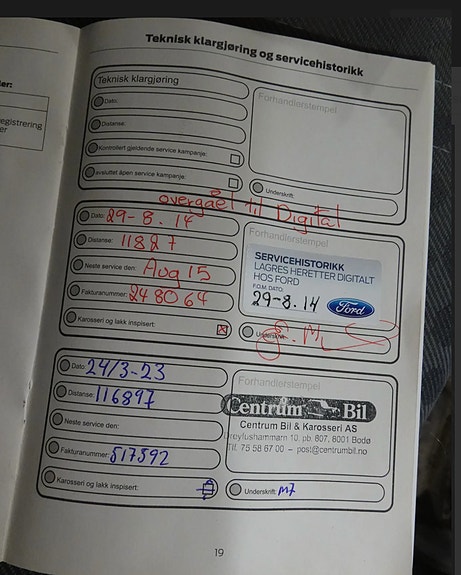 Teknisk klargjøring og servicehistorikk
ler:
egistrering
er
Teknisk klargjøring
Dato:
Distanse:
Kontrollert gjeldende service kampanje:
avsluttet åpen service kampanje:
Forhandlerstempel
Underskrift:
overgået til Digital
Dato: 29-8.14
Distanse: 11827
Neste service den: Aug 15
Fakturanummer: 248064
Karosseri og lakk inspisert:
Forhandlerstempel
SERVICEHISTORIKK
LAGRES HERETTER DIGITALT
HOS FORD
F.O.M. DATO:
29-8.14
Ford
Underskrift:
Dato: 24/3-23
Distanse: 116897
Neste service den:
Fakturanummer: 517592
Karosseri og lakk inspisert:
Forhandlerstempel
Centrum Bil
Centrum Bil & Karosseri AS
Dreyfushammarn 10, pb. 807, 8001 Bodø
Tlf. 75 58 67 00 – post@centrumbil.no
Underskrift: M7
19